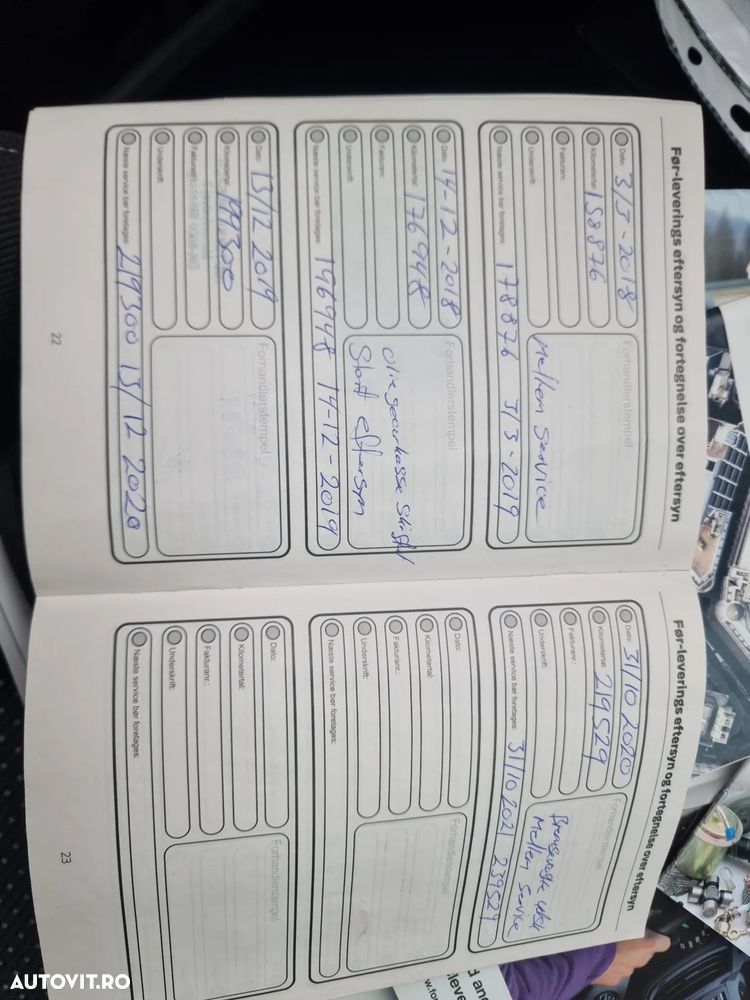 Før-leverings eftersyn og fortegnelse over eftersyn
Dato: 3/5-2018
Kilometertal: 158876
Fakturanr.:
Underskrift:
Næste service bør foretages: 178876 3/3-2019
Forhandlerstempel
Mellem Service
Dato: 14-12-2018
Kilometertal: 176948
Fakturanr.:
Underskrift:
Næste service bør foretages: 196948 14-12-2019
Forhandlerstempel
Stort eftersyn
Dato: 13/12 2019
Kilometertal: 199300
Fakturanr.:
Underskrift:
Næste service bør foretages: 219300 13/12 2020
Forhandlerstempel
22
Før-leverings eftersyn og fortegnelse over eftersyn
Dato: 31/10 2020
Kilometertal: 219529
Fakturanr.:
Underskrift:
Næste service bør foretages: 31/10 2021 239529
Forhandlerstempel
Mellem Service
Dato:
Kilometertal:
Fakturanr.:
Underskrift:
Næste service bør foretages:
Forhandlerstempel
Dato:
Kilometertal:
Fakturanr.:
Underskrift:
Næste service bør foretages:
Forhandlerstempel
23
AUTOVIT.RO